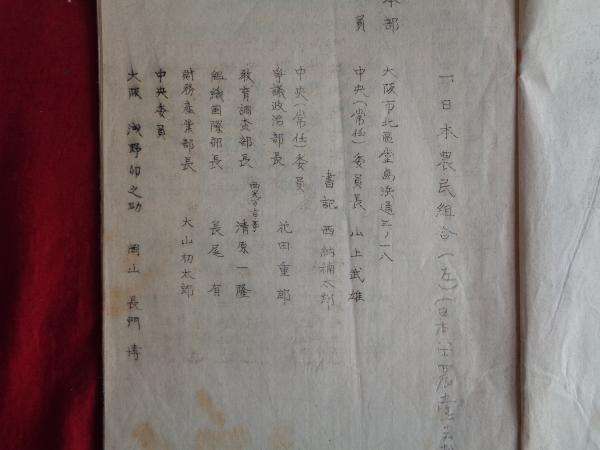 一、日本農民組合(左)(日本労農党系
本部　大阪市北區堂島浜通三ノ一八
員　中央(常任)委員長　山上武雄
書記　西納楠太郎
中央(常任)委員
争議政治部長　花田重郎
教育調査部長　清原一隆
組織国際部長　長尾有
財務産業部長　大山初太郎
中央委員
大阪　浅野卯之助　岡山　長門博